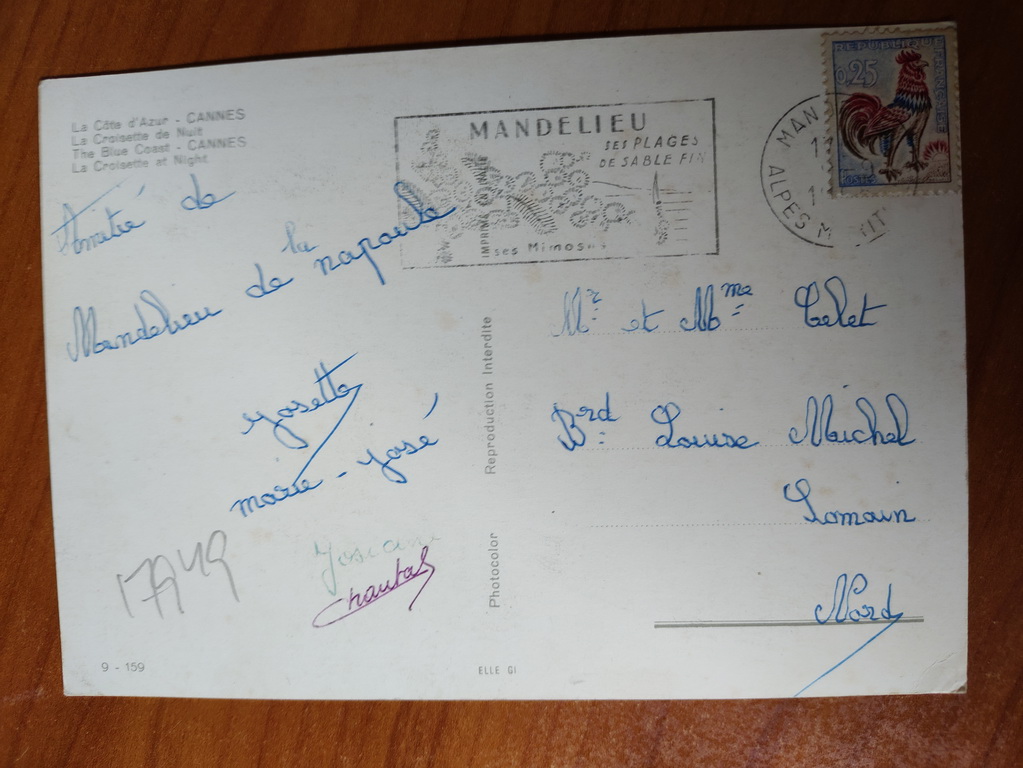 La Côte d'Azur - CANNES
La Croisette de Nuit
The Blue Coast - CANNES
La Croisette at Night
MANDELIEU
SES PLAGES
DE SABLE FIN
ses Mimosas
REPUBLIQUE FRANÇAISE
0,25
MAN
ALPES M
Amitié de
Mandelieu de la napoule
Yosette
marie - José
Josiane
Chantal
17949
9 - 159
IMPRIMÉ EN
Reproduction Interdite
Photocolor
ELLE GI
Mr et Mme Telet
Brd Louise Michel
Lomain
Nord